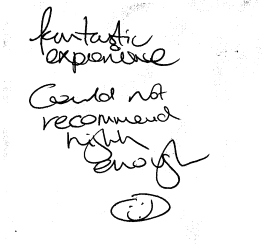 fantastic
experience
Could not
recommend
high
enough